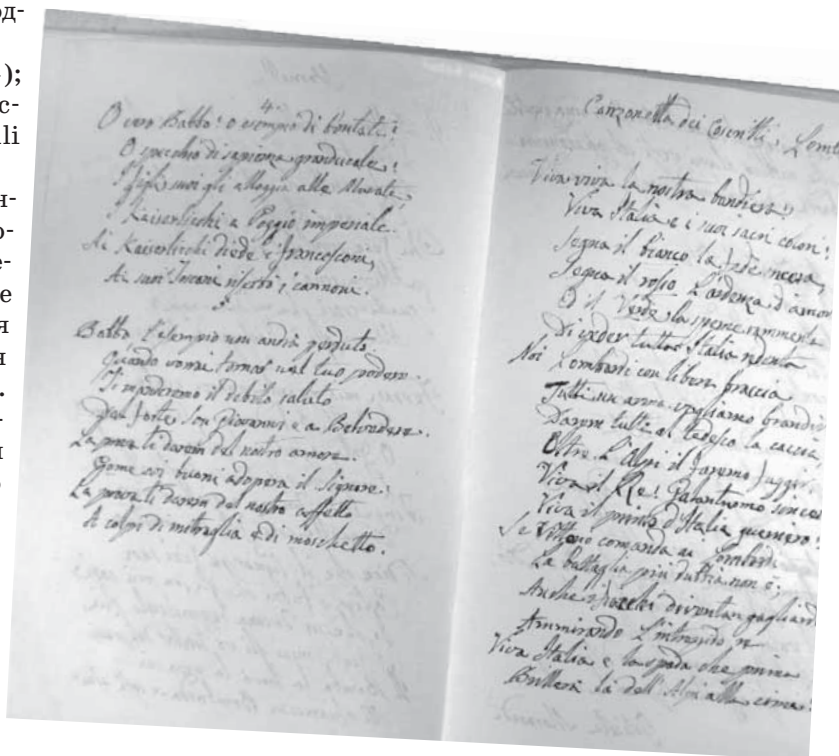 од-
);
с-
li
н-
о-
е-
е
я
я
.
-
4°
O caro Babbo! o esempio di bontate!
O specchio di sapienza granducale!
I figli suoi gli alloggia alle Murate,
I Kaiserlicchi a Poggio imperiale.
Ai Kaiserlicchi diede i francesconi,
Ai suoi Toscani i cannoni.
5
Babbo, l'esempio non andrà perduto.
Quando vorrai tornar nel tuo podere
Ti il debito saluto
Da Forte San Giovanni e a Belvedere.
La prova ti darem del nostro amore.
Come coi buoni adopera il Signore:
La prova ti darem del nostro affetto
A colpi di mitraglia e di moschetto.
Canzonetta dei Coscritti Lomb
Viva viva la nostra bandiera,
Viva Italia e i suoi sacri colori!
Segna il bianco la fede sincera,
Segna il rosso l'ardenza d'amor
Ed il Verde la speme rammenta
Di veder tutta Italia redenta
Noi Lombardi con libere braccia
Tutti un'arma vogliamo brandir
Darem tutti al tedesco la caccia,
Oltre l'Alpi il faremo fuggir
Viva il Re! Galantuomo sincero
Viva il primo d'Italia guerriero!
Se Vittorio comanda ai Lombardi
La battaglia più dubbia non è;
Anche i diventan gagliardi
Ammirando l'intrepido re
Viva Italia e la spada che prima
Brillerà là dell'Alpi alla cima!